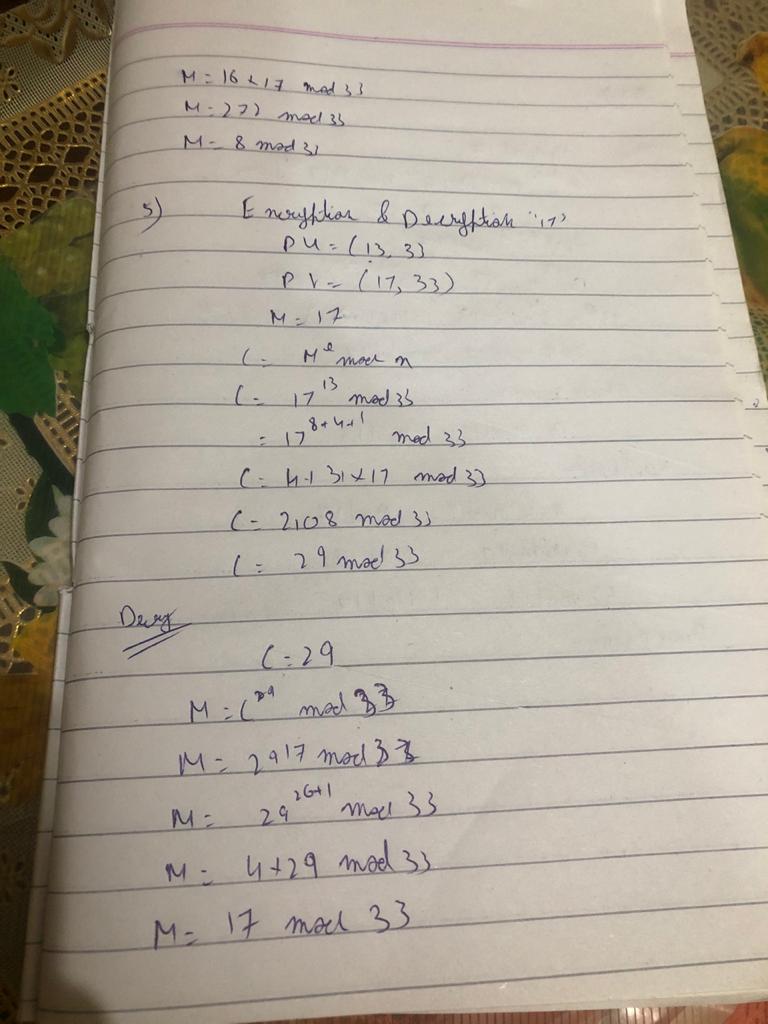 M = 16 × 17 mod 33
M = 272 mod 33
M = 8 mod 33
5) Encryption & Decryption "17"
PU = (13, 33
PV = (17, 33)
M = 17
C = M^e mod n
C = 17^13 mod 33
= 17^8+4+1 mod 33
C = 4 × 31 × 17 mod 33
C = 2108 mod 33
C = 29 mod 33
Decry
C = 29
M = C mod 33
M = 29^17 mod 33
M = 29 mod 33
M = 4 × 29 mod 33
M = 17 mod 33